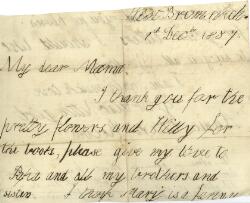 West Bromwich
1st Decr. 1887
My dear Mama
I thank you for the
pretty flowers and Willy for
the books, please give my love to
Papa and all my brothers and
sisters I think Marie is a